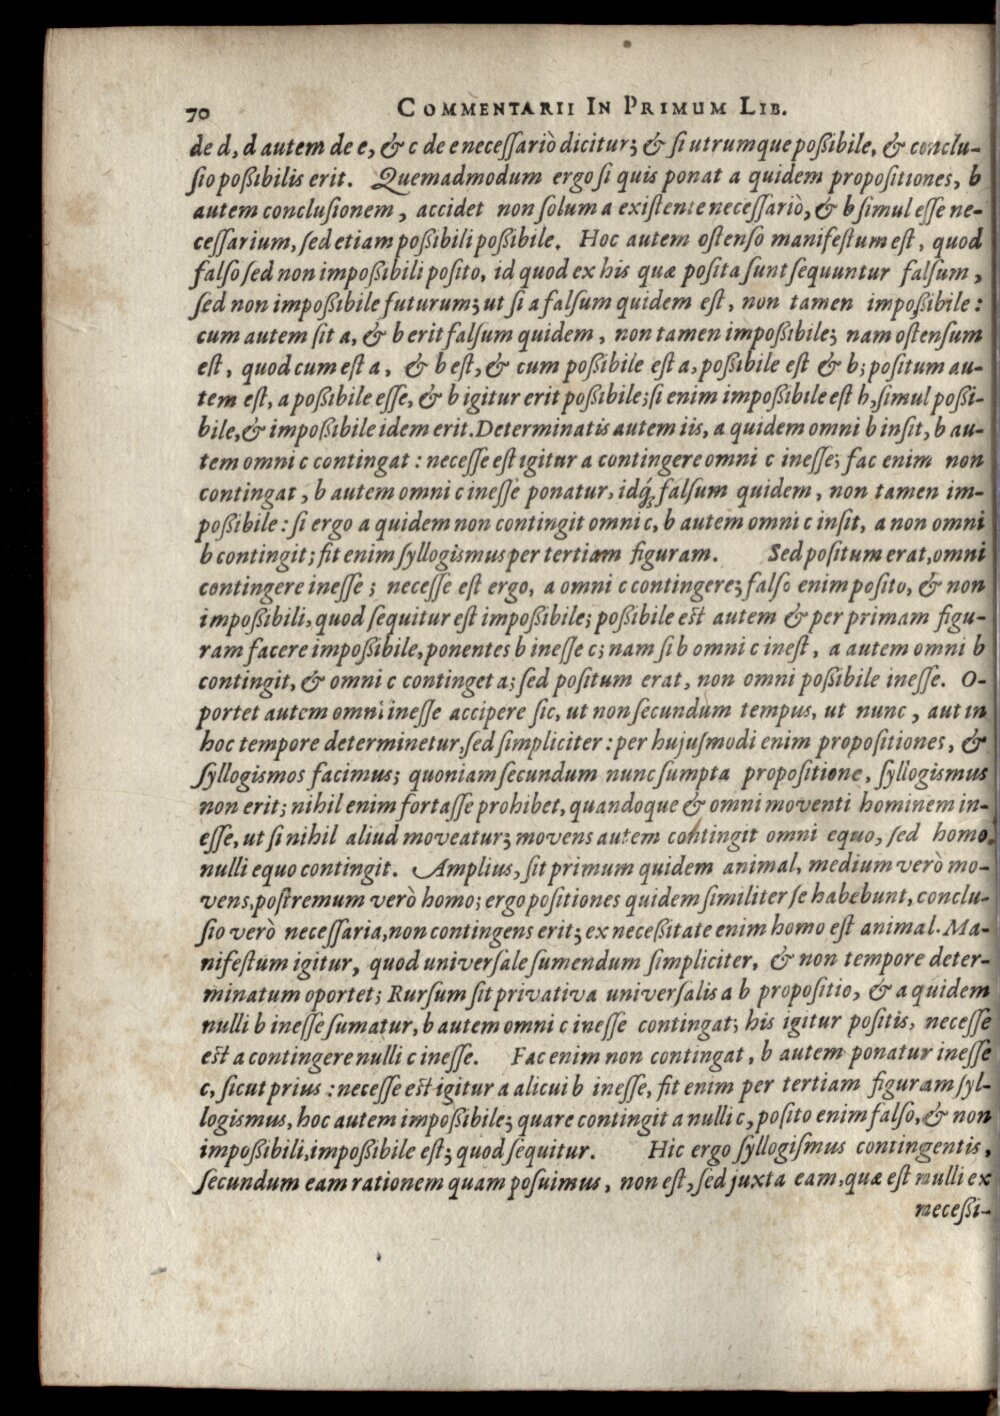 70 COMMENTARII IN PRIMUM LIB.
de d, d autem de e, & c de e necessariò dicitur; & si utrumque possibile, & conclu-
sio possibilis erit. Quemadmodum ergo si quis ponat a quidem propositiones, b
autem conclusionem, accidet non solum a existente necessariò, & b simul esse ne-
cessarium, sed etiam possibili possibile. Hoc autem ostenso manifestum est, quod
falso sed non impossibili posito, id quod ex his quæ posita sunt sequuntur falsum,
sed non impossibile futurum; ut si a falsum quidem est, non tamen impossibile:
cum autem sit a, & b erit falsum quidem, non tamen impossibile; nam ostensum
est, quod cum est a, & b est, & cum possibile est a, possibile est & b; positum au-
tem est, a possibile esse, & b igitur erit possibile; si enim impossibile est b, simul possi-
bile, & impossibile idem erit. Determinatis autem iis, a quidem omni b insit, b au-
tem omni c contingat: necesse est igitur a contingere omni c inesse; fac enim non
contingat, b autem omni c inesse ponatur, idq́; falsum quidem, non tamen im-
possibile: si ergo a quidem non contingit omni c, b autem omni c insit, a non omni
b contingit; fit enim syllogismus per tertiam figuram. Sed positum erat, omni
contingere inesse; necesse est ergo, a omni c contingere; falso enim posito, & non
impossibili, quod sequitur est impossibile; possibile est autem & per primam figu-
ram facere impossibile, ponentes b inesse c; nam si b omni c inest, a autem omni b
contingit, & omni c continget a; sed positum erat, non omni possibile inesse. O-
portet autem omni inesse accipere sic, ut non secundum tempus, ut nunc, aut in
hoc tempore determinetur, sed simpliciter: per hujusmodi enim propositiones, &
syllogismos facimus; quoniam secundum nunc sumpta propositione, syllogismus
non erit; nihil enim fortasse prohibet, quandoque & omni moventi hominem in-
esse, ut si nihil aliud moveatur; movens autem contingit omni equo, sed homo
nulli equo contingit. Amplius, sit primum quidem animal, medium verò mo-
vens, postremum verò homo; ergo positiones quidem similiter se habebunt, conclu-
sio verò necessaria, non contingens erit; ex necessitate enim homo est animal. Ma-
nifestum igitur, quod universale sumendum simpliciter, & non tempore deter-
minatum oportet; Rursum sit privativa universalis a b propositio, & a quidem
nulli b inesse sumatur, b autem omni c inesse contingat; his igitur positis, necesse
est a contingere nulli c inesse. Fac enim non contingat, b autem ponatur inesse
c, sicut prius: necesse est igitur a alicui b inesse, fit enim per tertiam figuram syl-
logismus, hoc autem impossibile; quare contingit a nulli c, posito enim falso, & non
impossibili, impossibile est; quod sequitur. Hic ergo syllogismus contingentis,
secundum eam rationem quam posuimus, non est, sed juxta eam, quæ est nulli ex
necessi-